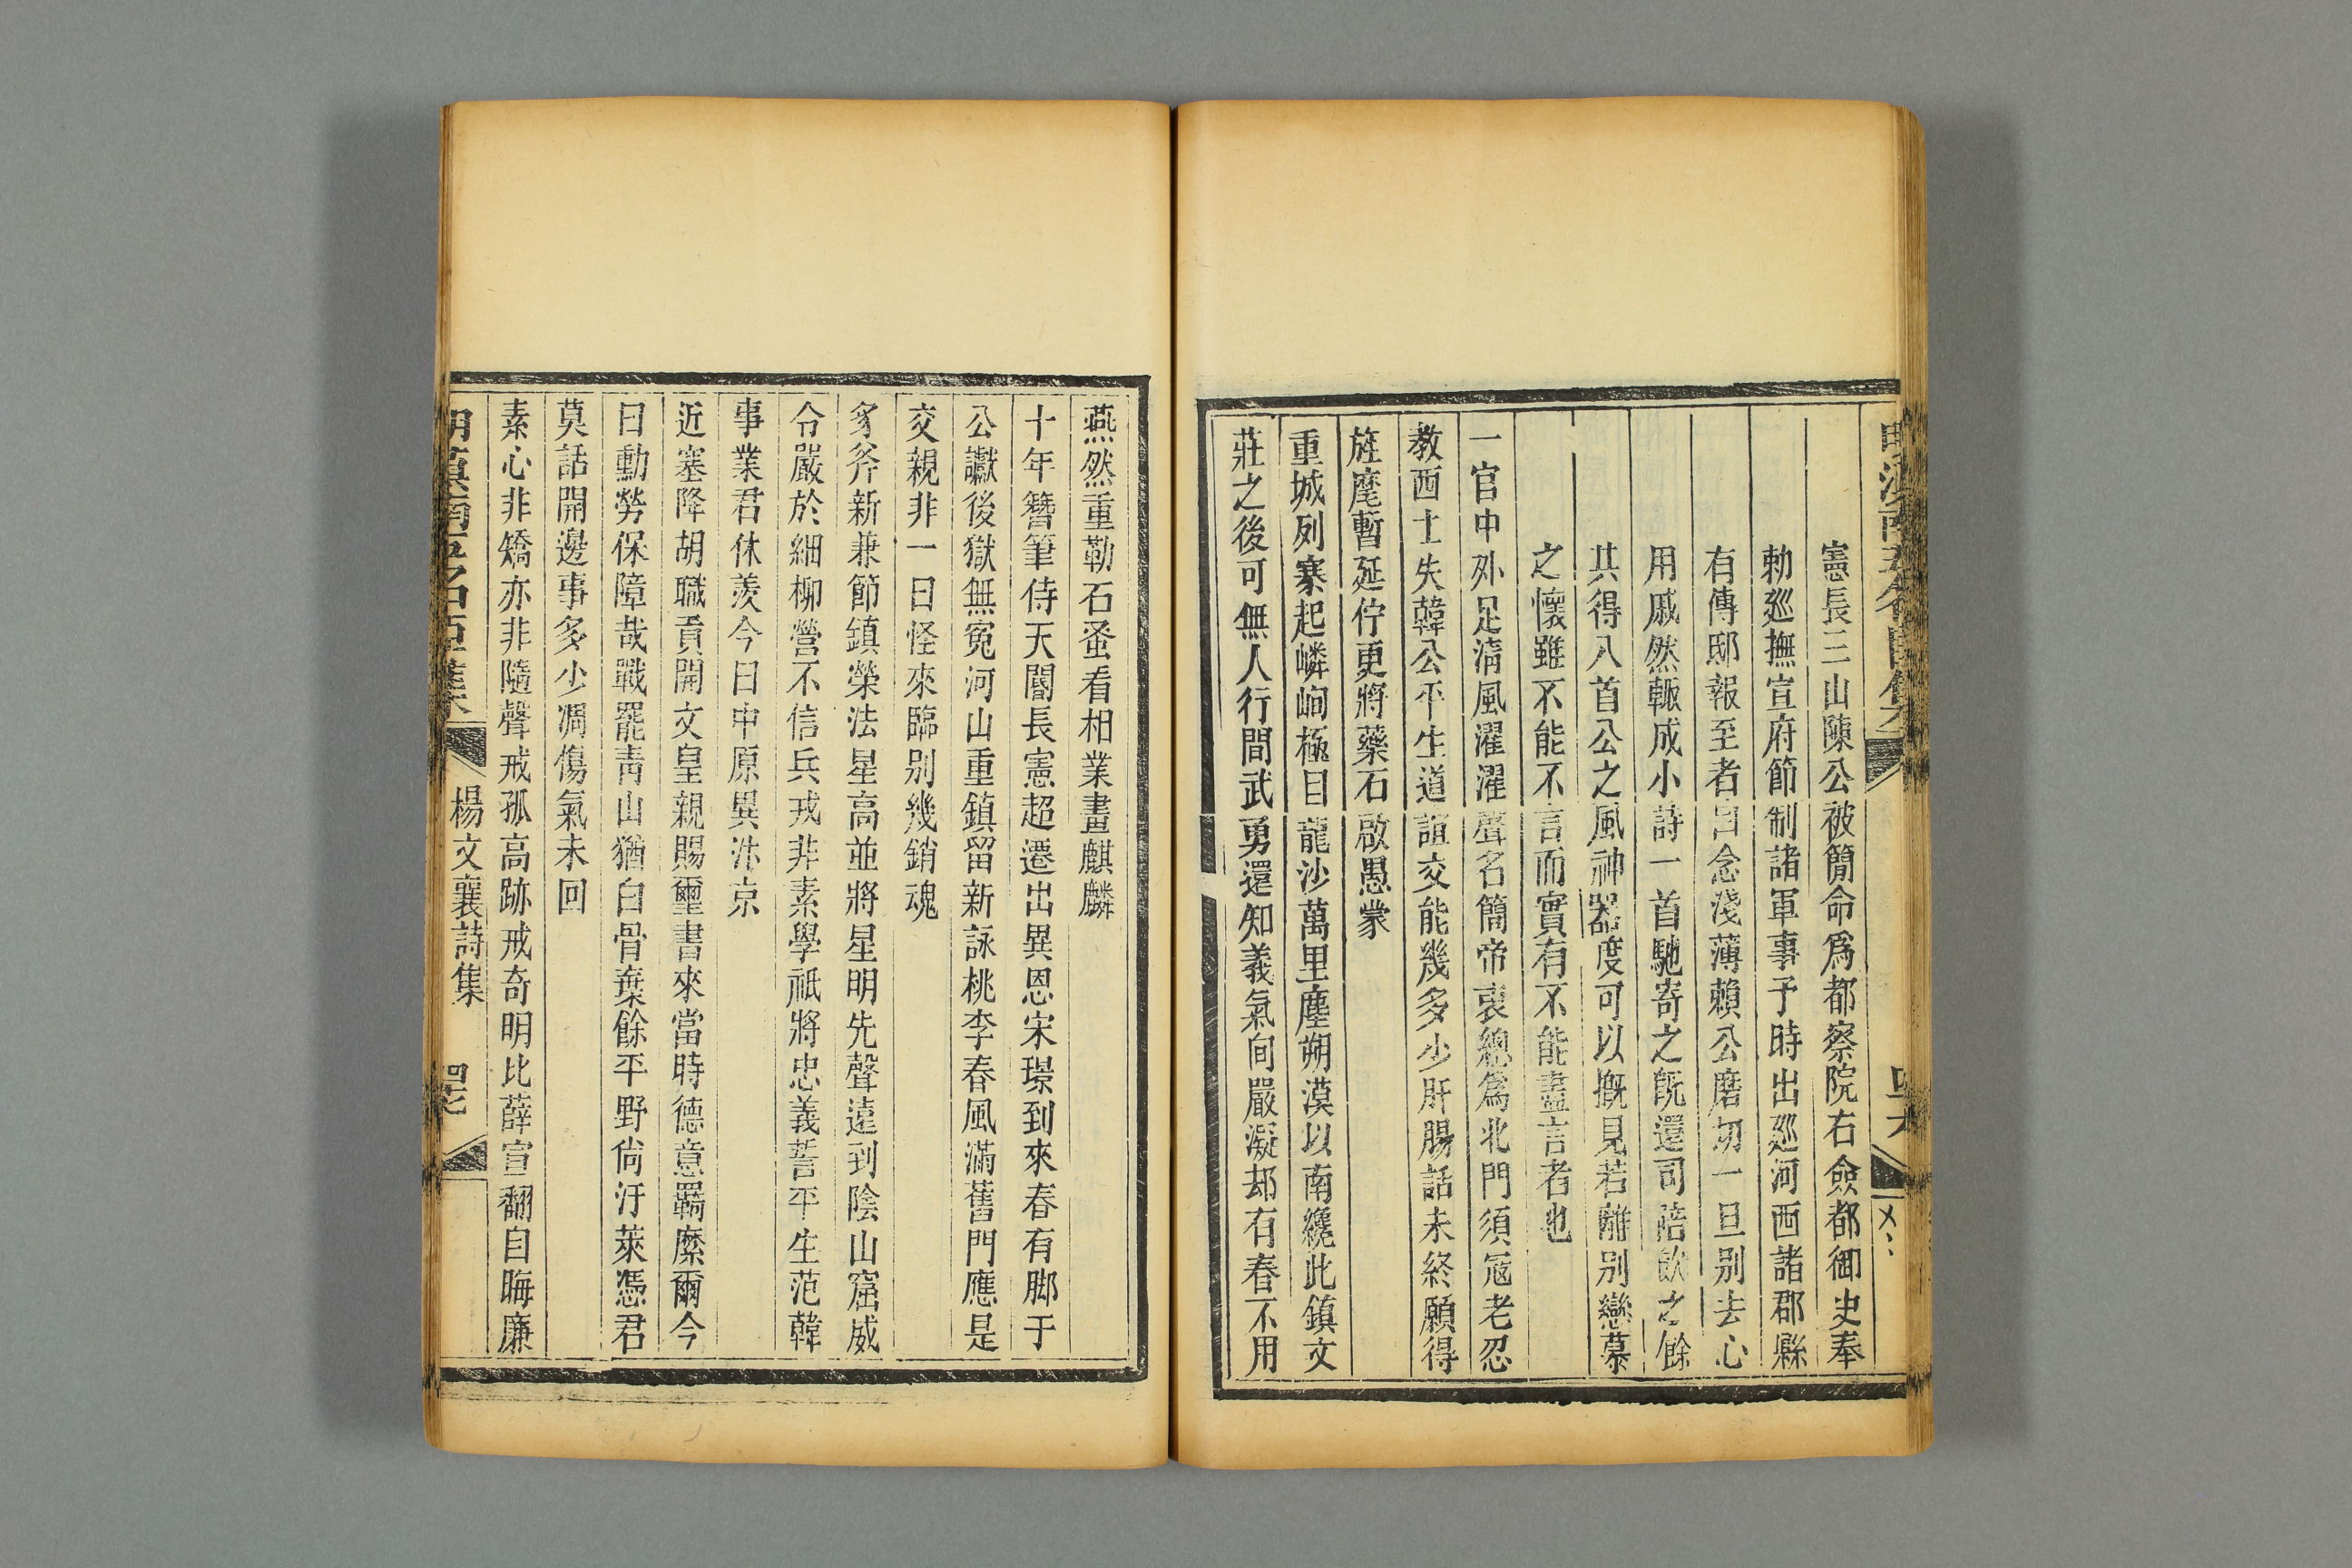 憲長三山陳公被簡命爲都察院右僉都御史奉
勅廵撫宣府節制諸軍事予時出廵河西諸郡縣
有傳邸報至者自念淺薄賴公磨切一旦别去心
用戚然輙成小詩一首馳寄之旣還司陪飲之餘
其得八首公之風神器度可以槪見若離别戀慕
之懷雖不能不言而實有不能盡言者也
一官中外足淸風濯濯聲名簡帝衷總爲北門須冦老忍
教西士失韓公平生道誼交能幾多少肝腸話未終願得
旌麾暫延佇更將藥石啟愚蒙
重城列寨起嶙峋極目龍沙萬里塵朔漠以南纔此鎮文
莊之後可無人行間武勇還知義氣向嚴凝却有春不用
燕然重勒石蚤看相業畫麒麟
十年簪筆侍天閽長憲超遷出異恩宋璟到來春有脚于
公讞後獄無寃河山重鎮留新詠桃李春風滿舊門應是
交親非一日怪來臨别幾銷魂
豸斧新兼節鎮榮法星高並將星明先聲遠到陰山窟威
令嚴於細柳營不信兵戎非素學祇將忠義誓平生范韓
事業君休羨今日中原異汴京
近塞降胡職貢開文皇親賜璽書來當時德意羈縻爾今
日動勞保障哉戰罷靑山猶白骨棄餘平野尙汙萊憑君
莫話開邊事多少凋傷氣未回
素心非矯亦非隨聲戒孤高跡戒奇明比薛宣翻自晦廉
楊文襄詩集